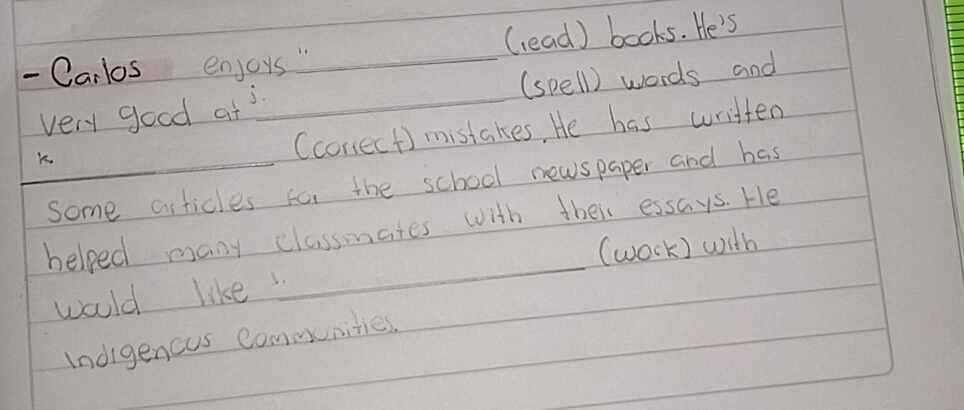 - Carlos enjoys i. ____________ (read) books. He's
very good at j. ____________ (spell) words and
k. ____________ (correct) mistakes. He has written
some articles for the school newspaper and has
helped many classmates with their essays. He
would like l. ____________ (work) with
indigenous communities.